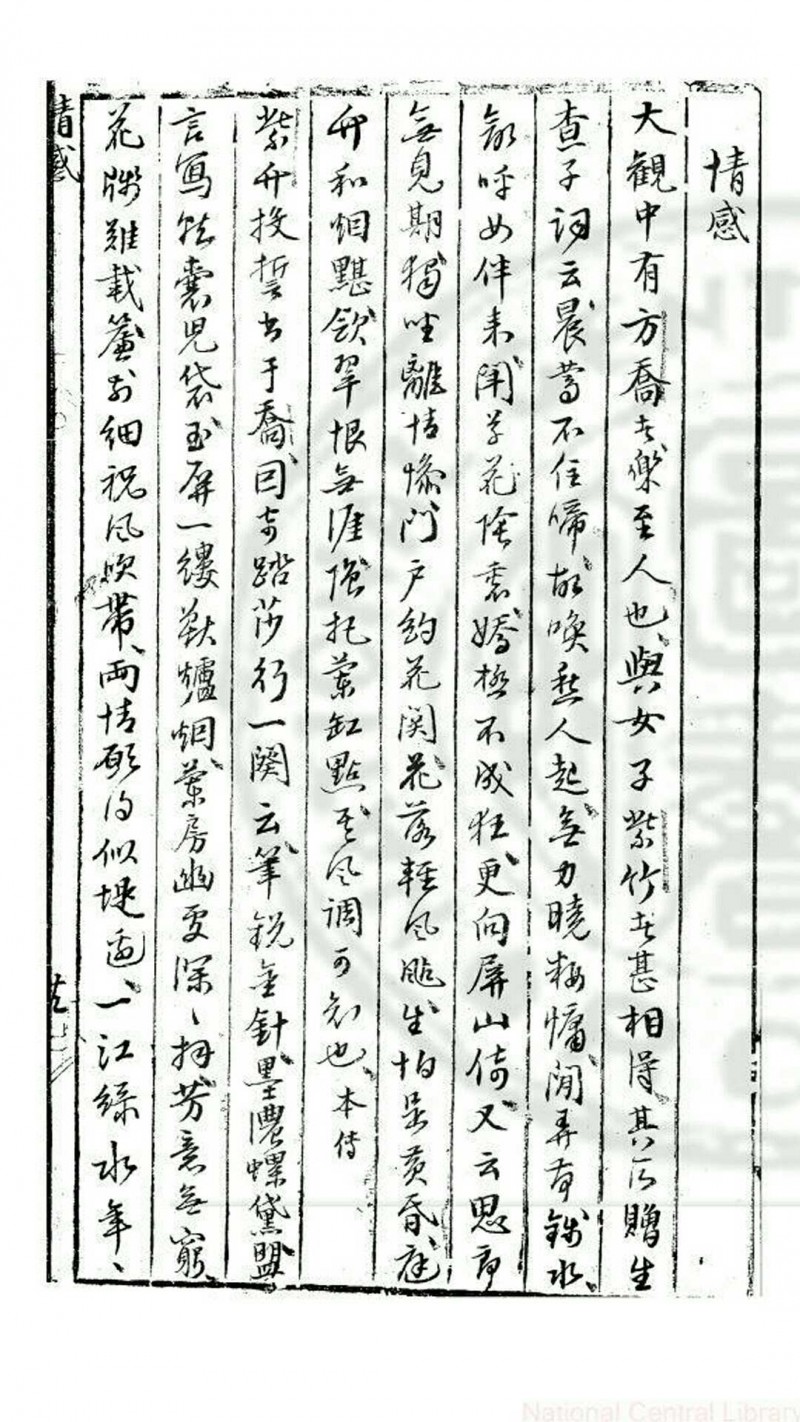 情感
大觀中有方喬者樂至人也與女子紫竹者甚相得其所贈生
查子詞云晨鶯不住啼故喚愁人起無力曉粧慵閒弄荷錢水
欲呼女伴來鬪草花陰裏嬌極不成狂更向屏山倚又云思郎
無見期獨坐離情慘門戶約花関花落輕風颭生怕是黃昏庭
竹和烟黮斂翠恨無涯強托蘭缸點其風調可知也本傳
紫竹投誓書于喬因寄踏莎行一闋云筆銳金針墨濃螺黛盟
言寫就囊兒袋玉屏一縷獸爐烟蘭房幽處深、拜芳意無窮
花牋難載簾前細祝風吹帶兩情願得似堤邊一江綠水年、
情感
National Central Library